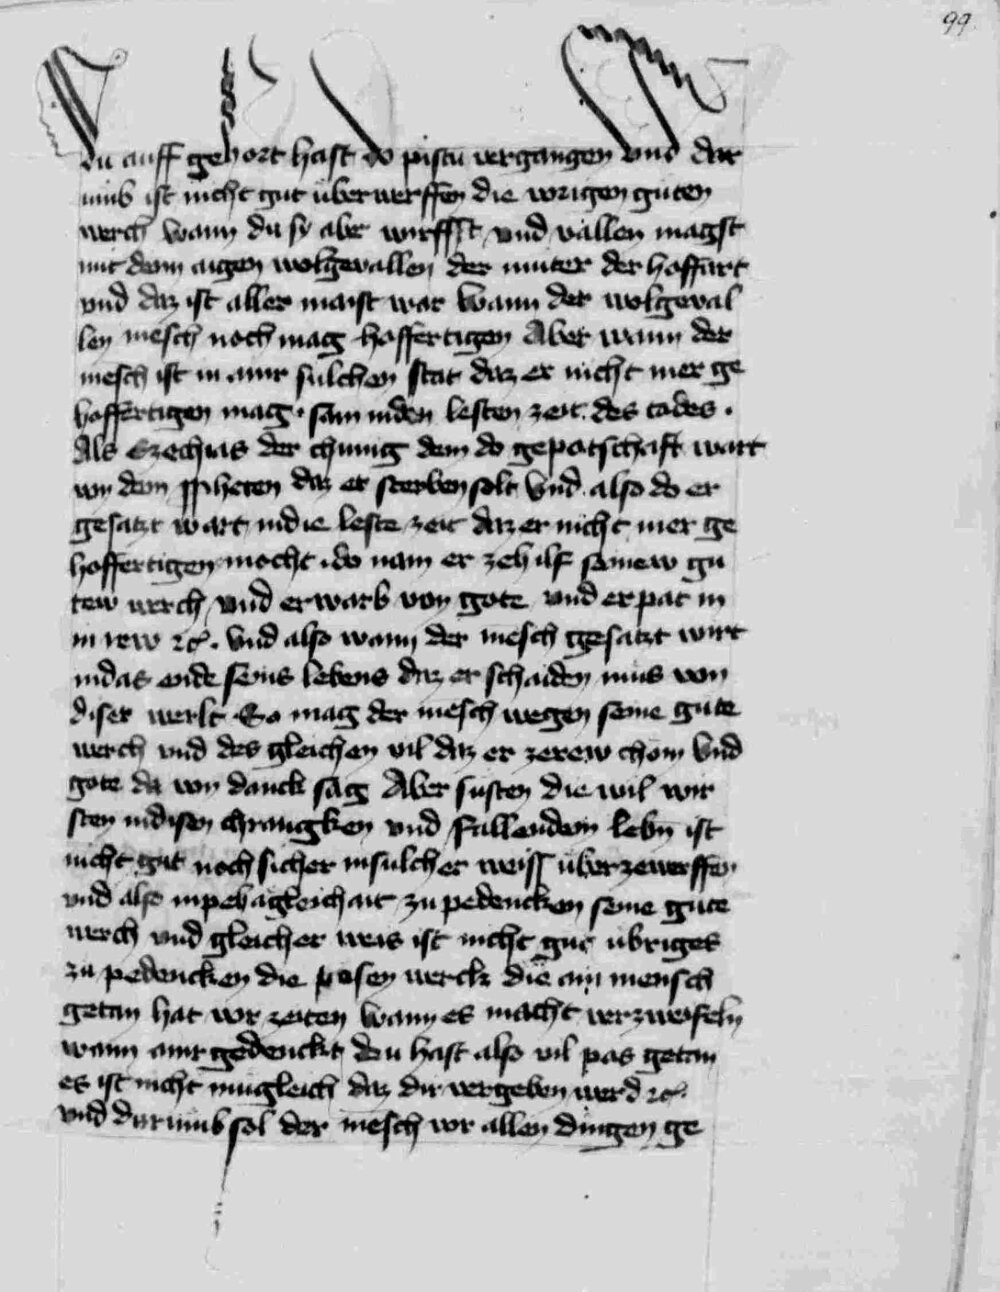 99
du auff gehort hast do pistu vergangen vnd dar
umb ist nicht gut überwerffen die vorigen guten
werch wann du sy aber wirffst vnd vallen magst
mit dem aigen wolgevallen der muter der hoffart
vnd daz ist aller maist war wann der wolgeval
len mesch noch mag hoffertigen Aber wann der
mesch ist in ainr sulchen stat daz er nicht mer ge
hoffertigen mag · sam in den lesten zeit des todes ·
Als Ezechias der chunig dem do gepotschaft wart
von dem ppheten daz er sterben solt Vnd also do er
gesatzt wart in die leste zeit daz er nicht mer ge
hoffertigen mocht · do nam er ze hilf seinew gu
tew werch vnd erwarb von gote vnd erpat in
in rew etc. Vnd also wann der mesch gesatzt wirt
in das ende seins lebens daz er schaiden mus von
diser werlt So mag der mesch wegen seine gute
werch vnd des gleichen vil daz er ze rew chom Vnd
gote da von danck sag Aber susten die wil wir
sten in disen chrangken vnd fallendem lebn ist
nicht gut noch sicher in sulcher weiss über ze werffen
vnd also in pehagleichait zu pedencken seine gute
werch vnd gleicher weis ist nicht gut ubriges
zu pedencken die posen werck die ain mensch
getan hat vor zeiten Wann es macht verzweifeln
wann ainr gedenckt dou hast also vil pas getan
es ist nicht mugleich daz dir vergeben werd etc.
vnd darumb sol der mesch vor allen dingen ge